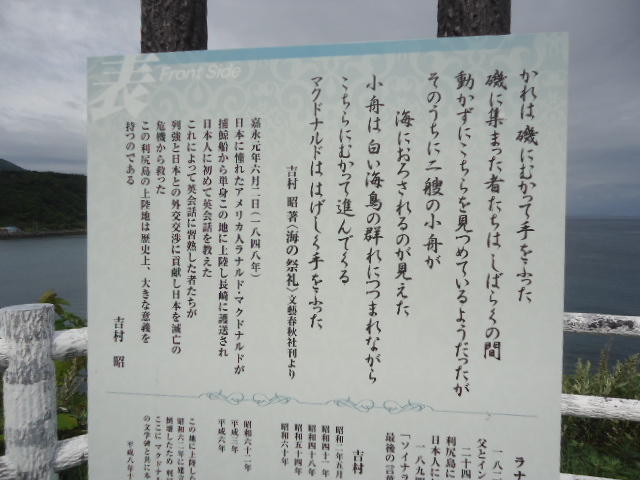 表
Front Side
かれは 磯にむかって手をふった
磯に集まった者たちは しばらくの間
動かずにこちらを見つめているようだったが
そのうちに二艘の小舟が
海におろされるのが見えた
小舟は 白い海鳥の群れにつつまれながら
こちらにむかって進んでくる
マクドナルドは はげしく手をふった
吉村 昭 著〈海の祭礼〉文藝春秋社刊より
嘉永元年六月二日(一八四八年)
日本に憧れたアメリカ人ラナルド・マクドナルドが
捕鯨船から単身この地に上陸し長崎に護送され
日本人に初めて英会話を教えた
これによって英会話に習熟した者たちが
列強と日本との外交交渉に貢献し日本を滅亡の
危機から救った
この利尻島の上陸地は歴史上、大きな意義を
持つのである
吉村 昭
ラナ
一八二
父とイン
二十四
利尻島に
日本人に
一八九四
「ソイナラ
最後の言葉
吉村
昭和二年五月
昭和四十一年
昭和四十八年
昭和五十四年
昭和六十年
昭和六十二年
平成三年
平成六年
この地に上陸した
昭和六二年に建
倒壊したため 利
ここに マクドナル
の文学碑と共に本
平成八年十